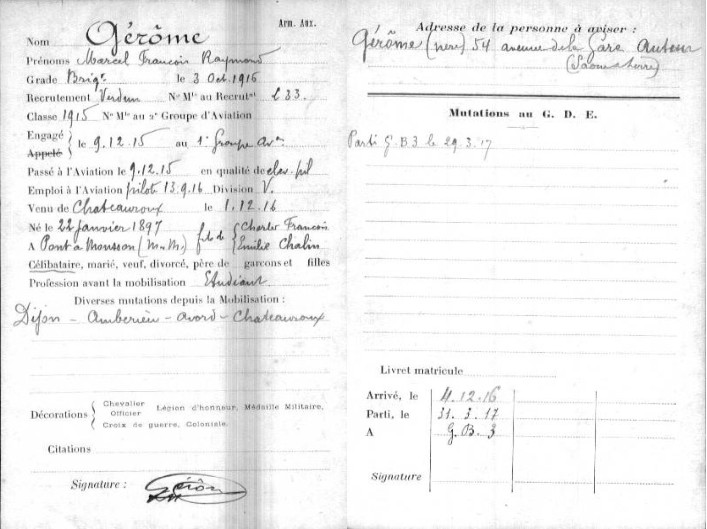 Arm. Aux.
Nom Gérôme
Prénoms Marcel François Raymond
Grade Brigr le 3 Oct. 1916
Recrutement Verdun No Mle au Recrutet 233
Classe 1915 No Mle au 2e Groupe d'Aviation
Engagé
Appelé
le 9.12.15 au 1er Groupe Avon
Passé à l'Aviation le 9.12.15 en qualité de élev. pil
Emploi à l'Aviation pilote 13.9.16 Division V.
Venu de Chateauroux le 1.12.16
Né le 22 janvier 1897
A Pont à Mousson (M.M.)
fils de
Charles François
Emilie Chalin
Célibataire, marié, veuf, divorcé, père de garçons et filles
Profession avant la mobilisation Etudiant
Diverses mutations depuis la Mobilisation :
Dijon - Amberieu - Avord - Chateauroux
Décorations
Chevalier
Officier
Légion d'honneur, Médaille Militaire,
Croix de guerre, Coloniale.
Citations
Signature : Gérôme
Adresse de la personne à aviser :
Gérôme (père) 54 avenue de la Gare Autun
(Saone et Loire)
Mutations au G. D. E.
Parti G.B 3 le 29.3.17
Livret matricule
Arrivé, le 4.12.16
Parti, le 31.3.17
A G.B.3
Signature